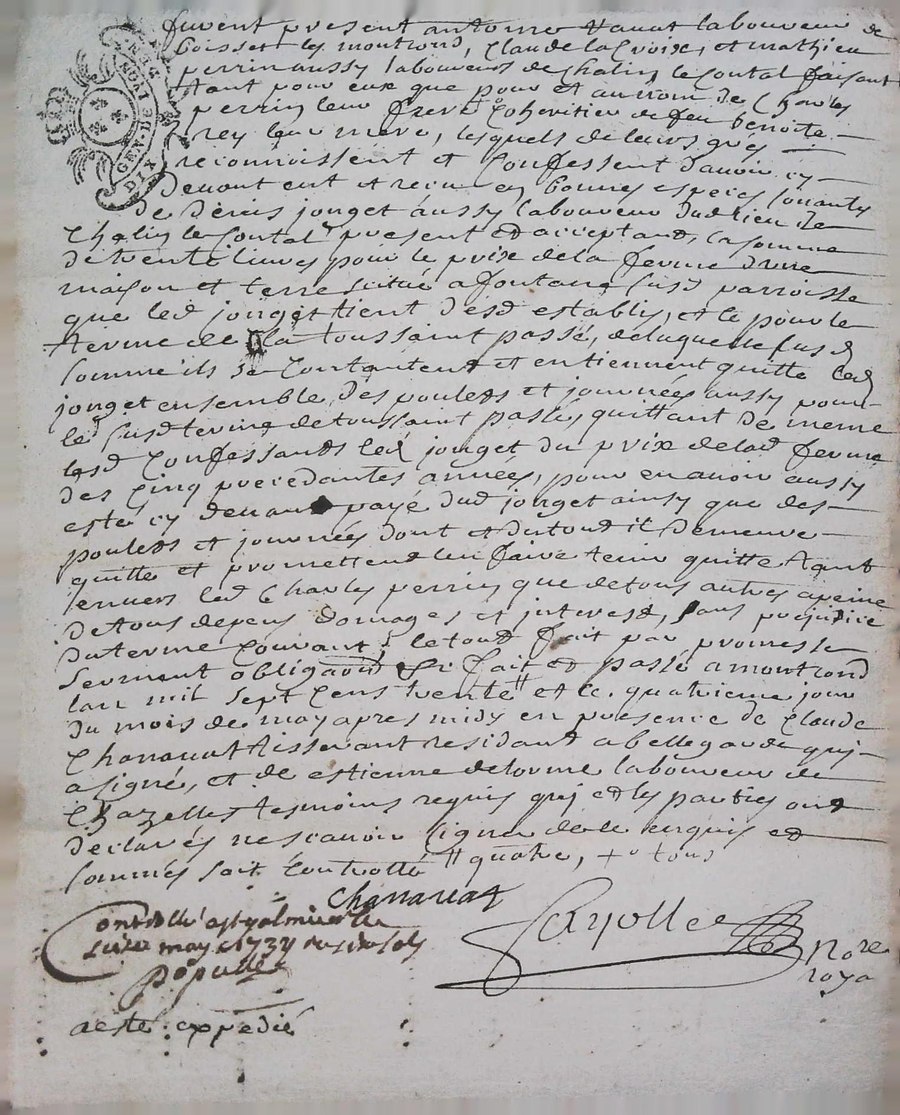 GEN. DE LION
DIX DEN.
furent present antoine Vanat laboureur de
boisset les montrond, Claude la Croix, et mathieu
perrin aussy laboureurs de Chalin le Contal faisant
tant pour eux que pour et au nom de Charles
perrin leur frere Coheritier de feu benoite
rey leur mere, lesquels de leurs grés
reconnoissent et Confessent d'avoir cy
devant eut et receu en bonnes especes sonants
de Denis jonget aussy laboureur dud lieu de
Chalin le Contal present et acceptant, la somme
de trente livres pour le prix de la ferme d'une
maison et terre scitué a fontane susd parroisse
que led jonget tient desd establis, et ce pour le
terme de la toussaint passé, de laquelle susd
somme ils se Contantent et en tiennent quitte led
jonget ensemble des poulets et journées aussy pour
le susd terme de toussaint passé, quittant de meme
lesd Confessants led jonget du prix de lad ferme
des Cinq precedantes années, pour en avoir aussy
esté cy devant payé dud jonget ainsy que des
poulets et journées dont et du tout il demeure
quitte et promettent luy faire tenir quitte tant
envers led Charles perrin que de tous autres a peine
de tous depens domages et interest, sans prejudice
du terme Courant, le tout fait par promesse
serment obligaon Fait et passé a montrond
lan mil sept Cens trente " et le quatrieme jour
du mois de may apres midy en presence de Claude
Chanavat tisserant residant a bellegarde qui
a signé, et de estienne delorme laboureur de
Chazelles tesmoins requis qui et les parties ont
declarés ne scavoir signer de ce enquis et
sommés soit Controllé " quatre, + tous
Chanavat
Controllé a st galmier le
may 1734
a esté expedié
Fayolle
Nore
roya